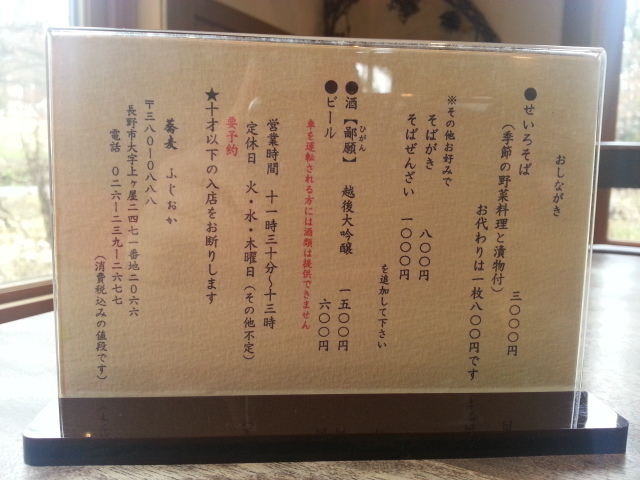 おしながき
●せいろそば 三〇〇〇円
(季節の野菜料理と漬物付)
お代わりは一枚八〇〇円です
※その他お好みで
そばがき 八〇〇円
そばぜんざい 一〇〇〇円
を追加して下さい
●酒【鄙願】 越後大吟醸 一五〇〇円
ひがん
●ビール 六〇〇円
車を運転される方には酒類は提供できません
営業時間 十一時三十分～十三時
定休日 火・水・木曜日(その他不定)
要予約
★十才以下の入店をお断りします
蕎麦 ふじおか
〒三八〇ー〇八八八
長野市大字上ヶ屋二四七一番地二〇六六
電話 〇二六ー二三九ー二六七七
(消費税込みの値段です)